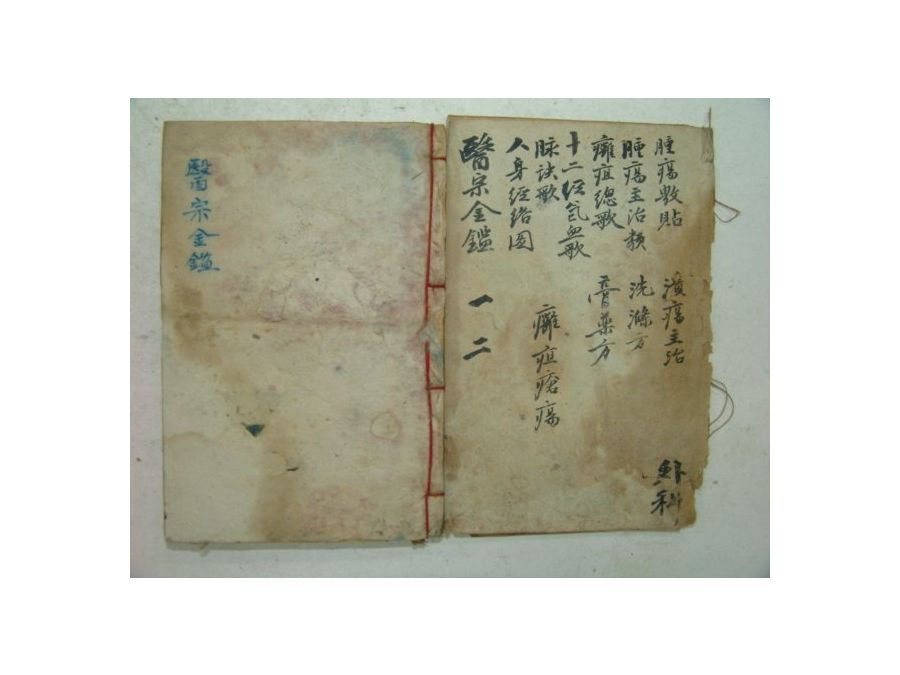 腫瘍敷貼 潰瘍主治
腫瘍主治類 洗滌方
癰疽總歌 膏藥方
十二经氣血歌
脉訣歌 癰疽瘡瘍
人身经络圖
醫宗金鑑 一 二
醫宗金鑑